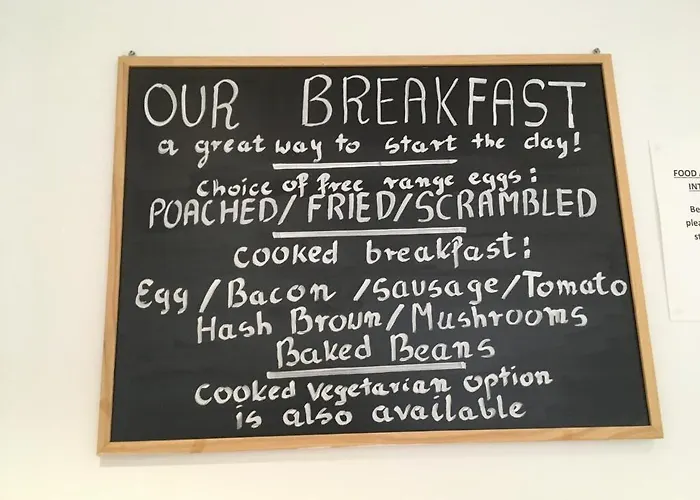 OUR BREAKFAST
a great way to start the day!
Choice of free range eggs:
POACHED/ FRIED/SCRAMBLED
Cooked breakfast:
Egg /Bacon /Sausage/Tomato
Hash Brown/Mushrooms
Baked Beans
Cooked Vegetarian option
is also available
FOOD
INT
Be
plea
st